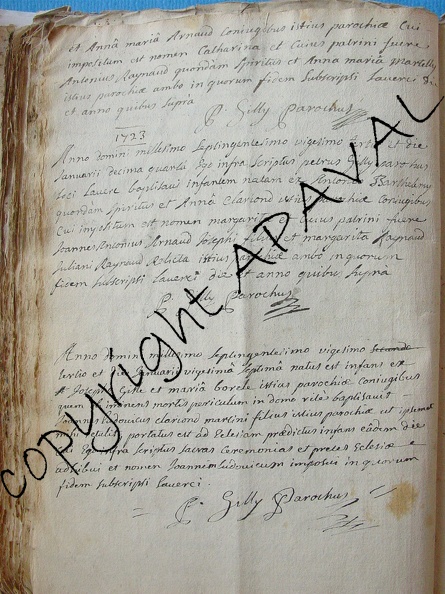 et Annâ mariâ Arnaud coniugibus istius parochiæ Cui
impositum est nomen Catharina et Cuius patrini fuere
Antonius Raynaud quondam Spiritus et Anna maria
istius parochiæ ambo in quorum fidem Subscripsi Laverci die
et anno quibus Supra
P. Gilly Parochus
1723
Anno domini millesimo Septingentesimo vigesimo tertio et die
Januarii decima quarta Ego infra Scriptus petrus Gilly parochus
loci Laverc baptisavi infantem natam ex Antonio
quondam Spiritus et Annâ Clariond istius parochiæ Coniugibus
Cui impositum est nomen margarita et Cuius patrini fuere
Joannes Antonius Arnaud Josephi filius et margarita Raynaud
Juliani Raynaud Relicta istius parochiæ ambo in quorum
fidem Subscripsi Laverci die et anno quibus Supra
P. Gilly Parochus
Anno domini millesimo Septingentesimo vigesimo secundo
tertio et die Januarii vigesimâ Septimâ natus est infans ex
Josepho et mariâ borele istius parochiæ coniugibus
quem ob imminens mortis periculum in domo ritè baptisavit
Joannes Ludovicus clariond martini filius istius parochiæ et
mihi retulit portatus est ad Eclesiam prædictus infans eâdem die
Ego infra Scriptus sacras Ceremonias et preces Eclesiæ
adhibui et nomen Joannem Ludovicum imposui in quorum
fidem subscripsi Laverci
P. Gilly Parochus
copyright APAVAL